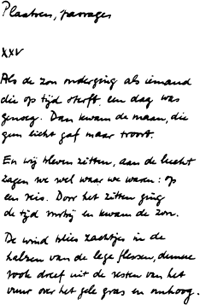 Plaatsen, passages
XXV
Als de zon onderging als iemand
die op tijd sterft een dag was
genoeg. Dan kwam de maan, die
geen licht gaf maar troost.
En wij bleven zitten, aan de lucht
zagen we wel waar we waren: op
een reis. Door het zitten ging
de tijd voorbij en kwam de zon.
De wind blies zachtjes in de
halzen van de lege flessen, dunne
rook dreef uit de resten van het
vuur over het gele gras en omhoog.